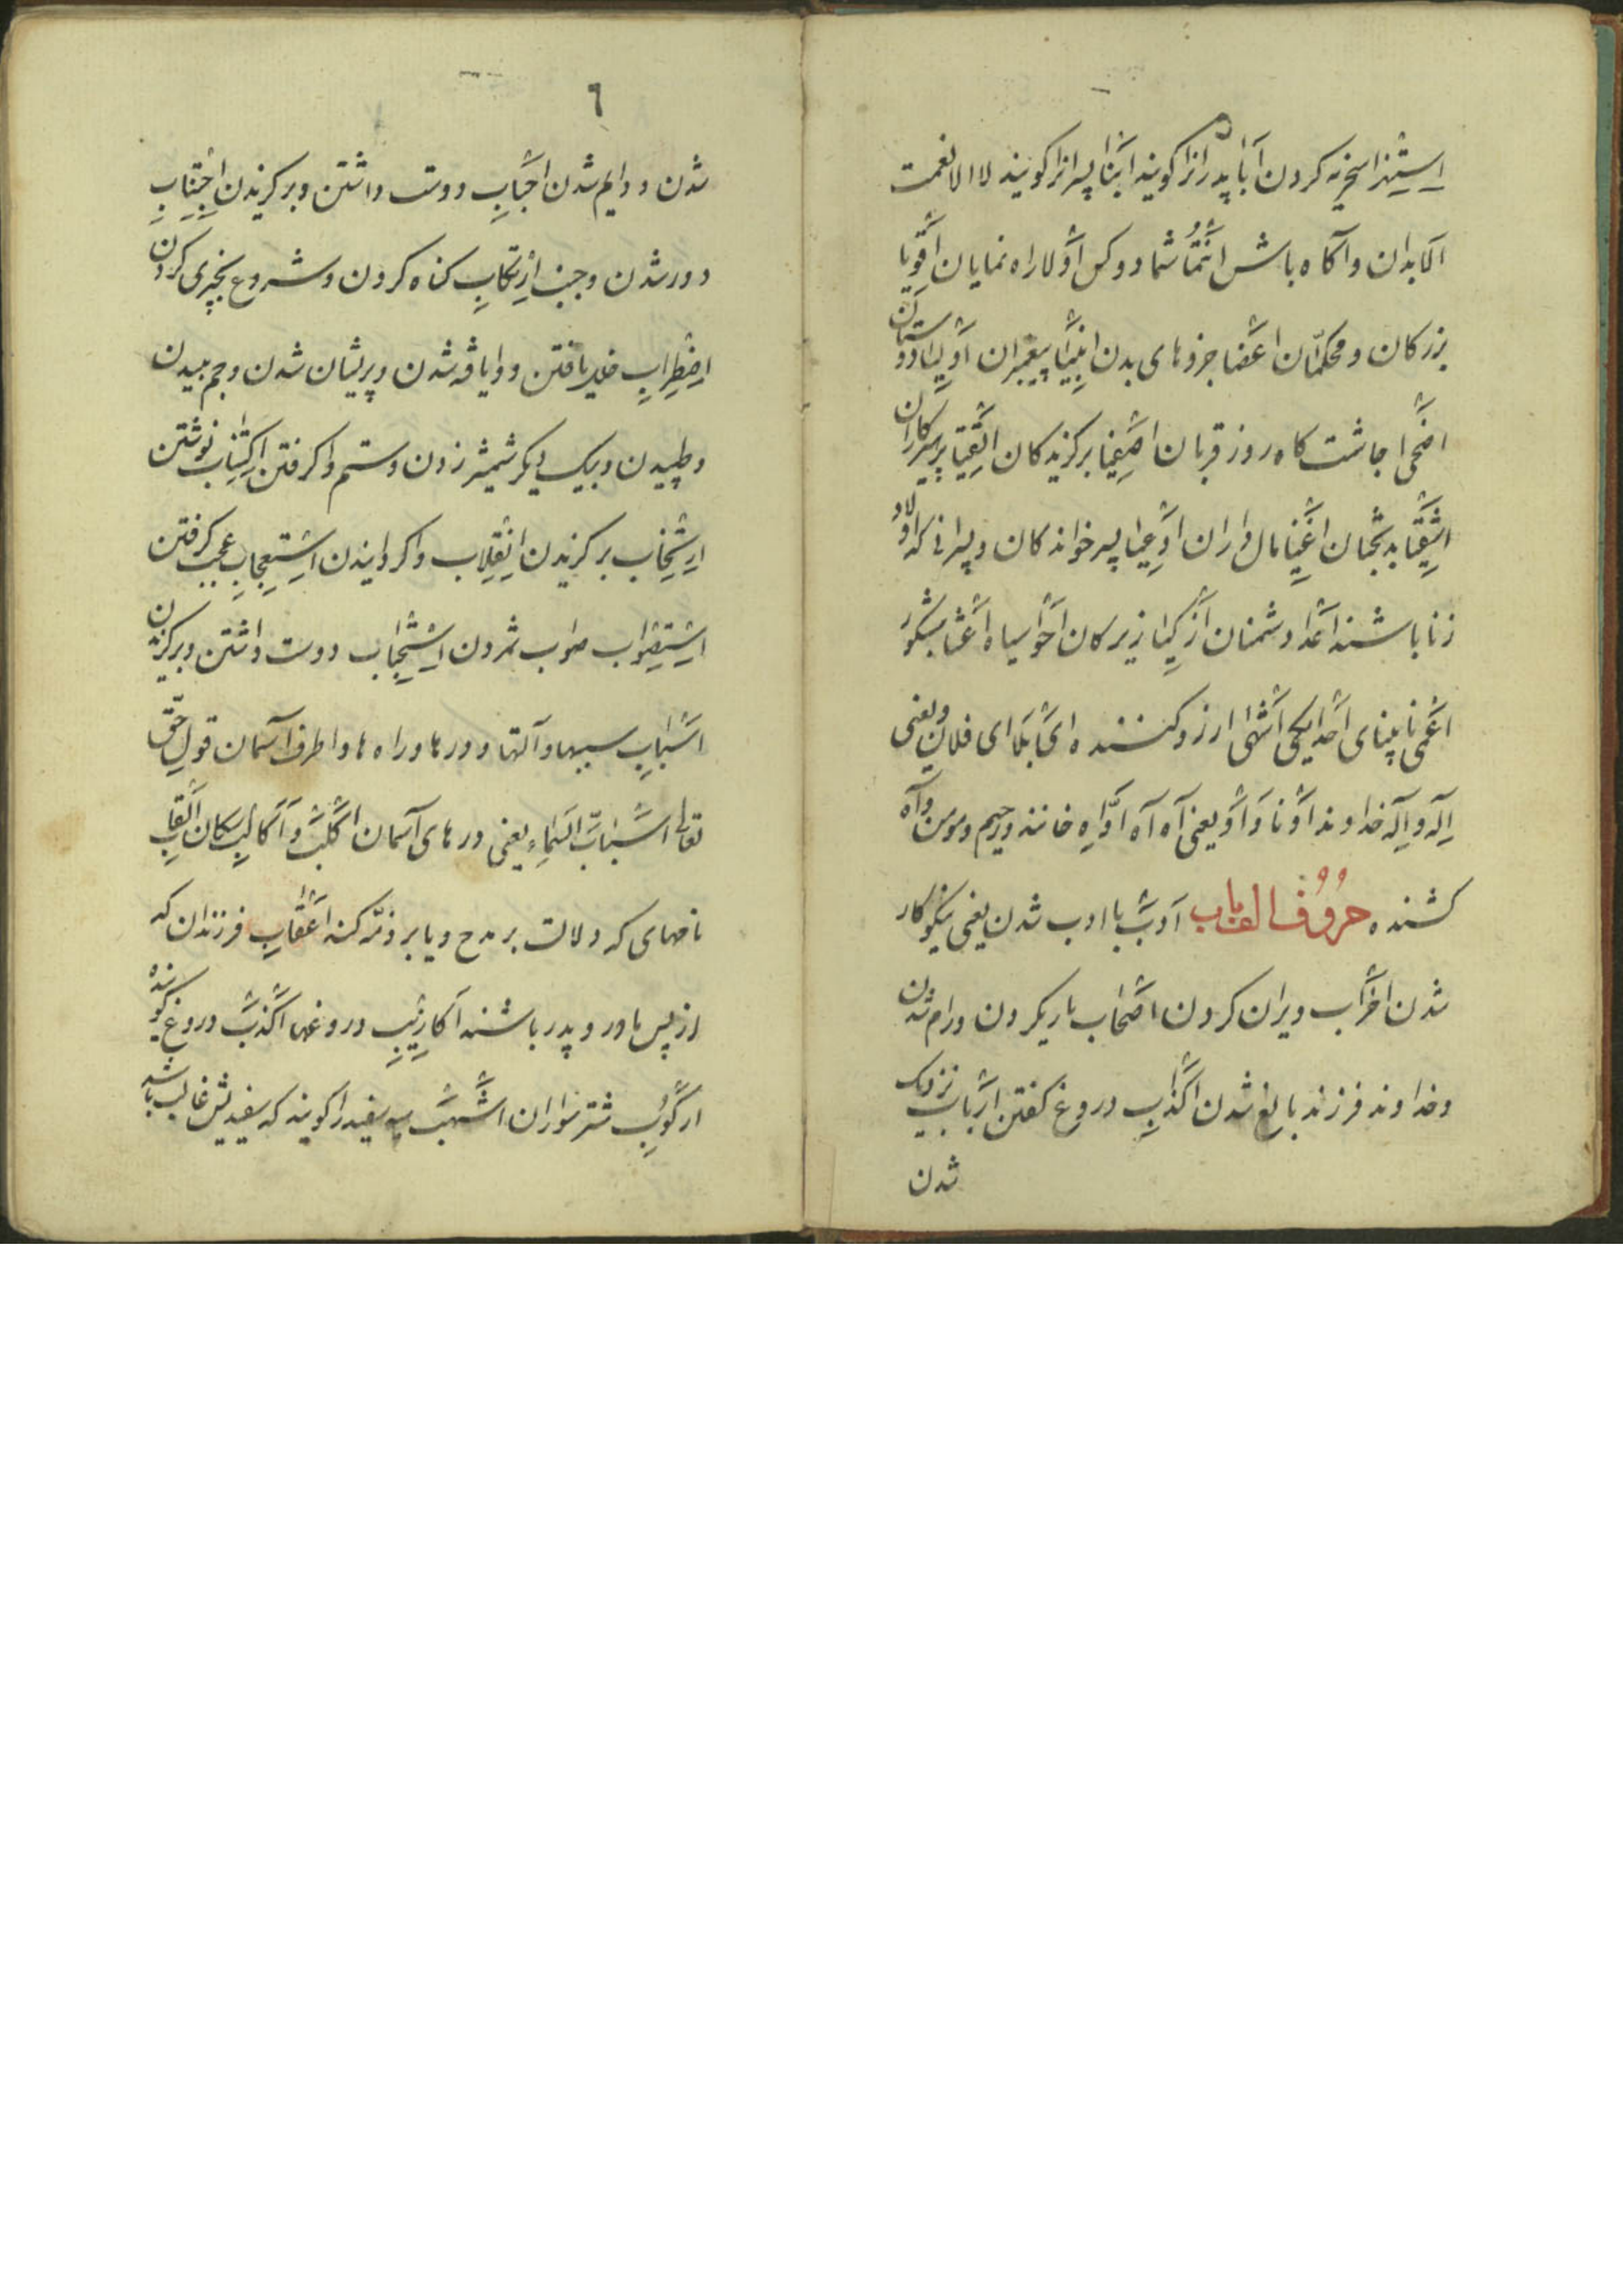 استهزا سخریه کردن آبا پدرانرا کویند ابنا پسرانرا کویند لا الا نعمت
الا بدان و آکاه باش انتما شما دو کس اولا راه نمایان اقویا
بزرکان و محکمان اعضا جزوهای بدن انبیا پیغمبران اولیا دوستان
اضحی چاشت کاه روز قربان اصفیا برکزیدکان اتقیا پرهیزکاران
اشقیا بدبختان اغنیا مال داران ادعیا پسر خواندکان و پسرانی که اولاد
زنا باشند اعدا دشمنان ازکیا زیرکان احوا سیاه اعشا شبکور
اعمی نابینای احدا یکی اشهی ارزو کننده ای یا ای فلان و یعنی
اله و اله خداوند اونا و او یعنی آه آه اواه خاننده و رحیم و مومن و آه
کشنده حروف الف باب ادب با ادب شدن یعنی نیکو کار
شدن اخراب ویران کردن اصحاب یاری کردن و رام شدن
و خداوند فرزند بالغ شدن اکذاب دروغ کفتن ارباب نزدیک
شدن
٦
شدن و دایم شدن احباب دوست داشتن و برکزیدن اجتناب
دور شدن و جنب ارتکاب کناه کردن و شروع بچیزی کردن
اضطراب خلل یافتن و وایافه شدن و پریشان شدن و جمبیدن
و طپیدن و بیک دیکر شمشیر زدن و ستم واکرفتن اکتتاب نوشتن
انتخاب برکزیدن انقلاب واکردانیدن استعجاب عجب کرفتن
استصواب صواب شمردن استحباب دوست داشتن و برکزیدن
اسباب سببها و آلتها و درها و راه ها و اطرف آسمان قول حق
تعالی اسباب السماء یعنی درهای آسمان اکلب و اکالب سکان القاب
نامهای که دلالت بر مدح و یا بر ذم کند اعقاب فرزندان که
از پس مادر و پدر باشند اکاذیب دروغها اکذب دروغ کوینده
ارکوب شتر سواران اشهب سیه سفید را کویند که سفیدیش غالب باشد